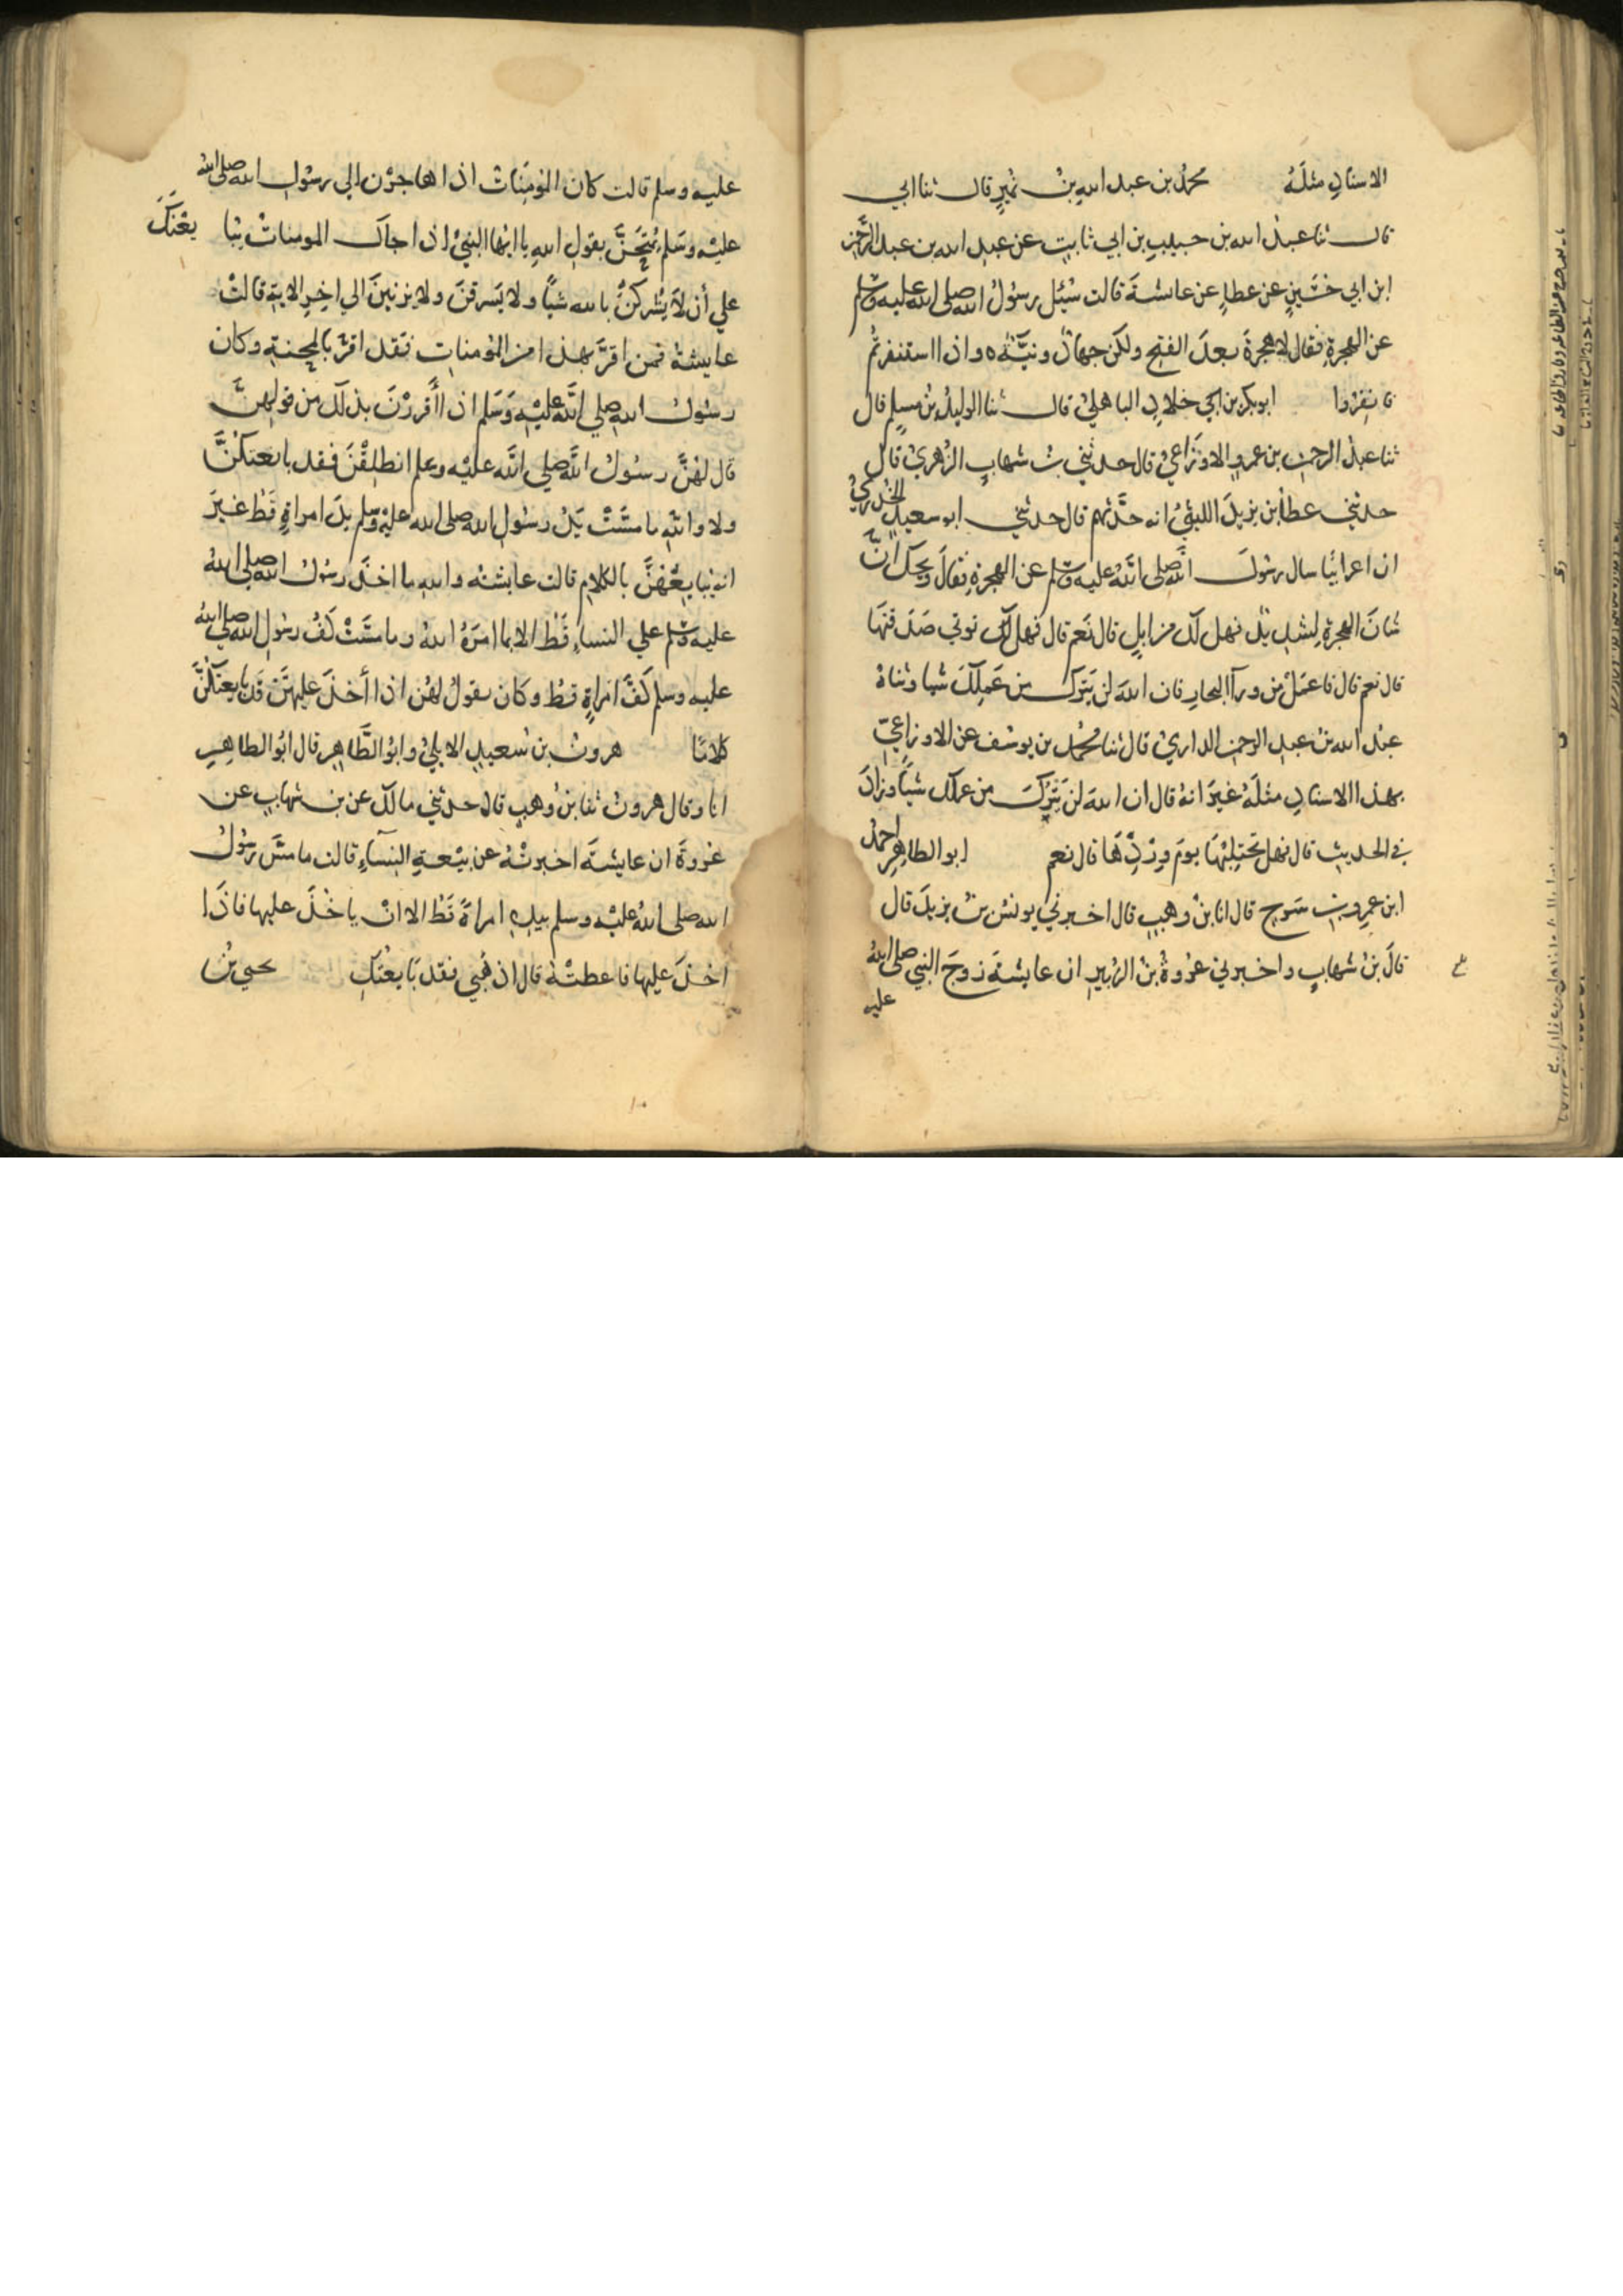 الاسنادِ مثلَهُ محمدُ بن عبد اللهِ بنُ نُميرٍ قال ثنا ابي
قال ثنا عبدُ الله بن حبيبِ بن ابي ثابتٍ عن عبدِ الله بن عبد الرَّحمن
ابن ابي حسَينٍ عن عطاءٍ عن عائشةَ قالت سُئِل رسُولُ الله صلى الله عليه وسلم
عن الهجرةِ فقال لا هجرةَ بعدَ الفتحِ ولكن جهادٌ ونيَّةٌ واذا استنفرتُم
فانفِرُوا ابو بكر بن ابي خلادٍ الباهليُ قال ثنا الوليدُ بنُ مسلمٍ قال
ثنا عبدُ الرحمن بن عمرٍو الاوزَاعيُّ قال حدثني بنُ شهابٍ الزهريُ قال
حدثني عطاُ بن يزيدَ الليثيُّ انه حدَّثهم قال حدثني ابو سعيدٍ الخُدريُ
ان اعرابيًا سال رسُولَ اللهِ صلى اللهُ عليه وسلم عن الهجرةِ فقالَ ويحكَ انَّ
شانَ الهجرةِ لشديدٌ فهل لك من ابلٍ قال نَعم قال فهل لك توتي صَدَقتهَا
قال نعم قال فاعمَلْ من ورآ البحارِ فان اللهَ لن يَتِرَك من عَمِلكَ شيا وثناهُ
عبدُ الله بنُ عبدِ الرحمن الداريُ قال ثنا محمدُ بن يوسُفَ عن الاوزاعيّ
بهذا الاسنادِ مثلَهُ غيرَ انهُ قال ان اللهَ لن يَتِرَكَ من عملك شيًا وزادَ
في الحديث قال فهل تحتلِبُهَا يومَ وِرْدِهَا قال نعم ابو الطاهِرِ احمدُ
ابن عمرِو بن سَرحٍ قال انا بنُ وهبٍ قال اخبرني يونسُ بنُ يزيدَ قال
قالَ بنُ شهابٍ واخبرني عُروةُ بنُ الزبيرِ ان عايشةَ زوجَ النبي صلى اللهُ
عليه
عليه وسلم قالت كان المُومِنَاتُ اذا هاجَرْنَ الي رسُولِ الله صلى اللهُ
عليْه وسَلم يُمْتَحَنَّ بقولِ اللهِ يا ايُّها النبيُ اذا جاك المومناتُ يُبَايِعْنَكَ
علي أن لا يُشركنَ بالله شيًا ولا يَسرقنَ ولا يزنينَ الي اخِرِ الايةِ قالتْ
عايشةُ فمن اقرَّ بهذا من المُومناتِ فقد اقرَّ بالمحنةِ وكان
رسُولُ اللهِ صلي اللَّه عليْهِ وَسَلم اذا أَقررْنَ بذلك من قولِهنَّ
قال لهُنَّ رسُولُ اللهِ صلي اللَّه عليْه وسلم انطلِقْنَ فقد بايعتكُنَّ
ولا واللهِ ما مسَّتْ يَدُ رسُولِ الله صلى الله عليْه وسلم يدَ امراةٍ قَطُ غيرَ
انه يُبايِعُهُنَّ بالكلامِ قالت عايشةُ والله ما اخذَ رسُولُ الله صلى اللهُ
عليه وسلم علي النساءِ قَطُ الا بما امَرَهُ اللهُ وما مسَّتْ كفُ رسُولِ الله صلى اللهُ
عليه وسلم كفَّ امراةٍ قطُ وكان يقولُ لهُن اذا أخذَ عليهنَّ قد بايعتكُنَّ
كلامًا هرونُ بن سَعيدٍ الايليُ وابُو الطَّاهِرِ قال ابُو الطاهِرِ
انا وقال هرونُ ثنا بنُ وهبٍ قال حدثني مالكٌ عن بن شهابٍ عن
عُروةَ ان عايشةَ اخبرتْهُ عن بيْعةِ النِساءِ قالت ما مسَّ رسُولُ
اللهِ صلى اللهُ عليْه وسلم بيدِهِ امراةً قَطُ الا انْ ياخُذَ عليها فاذَا
اخذَ عليها فاعطتْهُ قال اذهَبي فقد بَايعْتُكِ يحيي بنُ